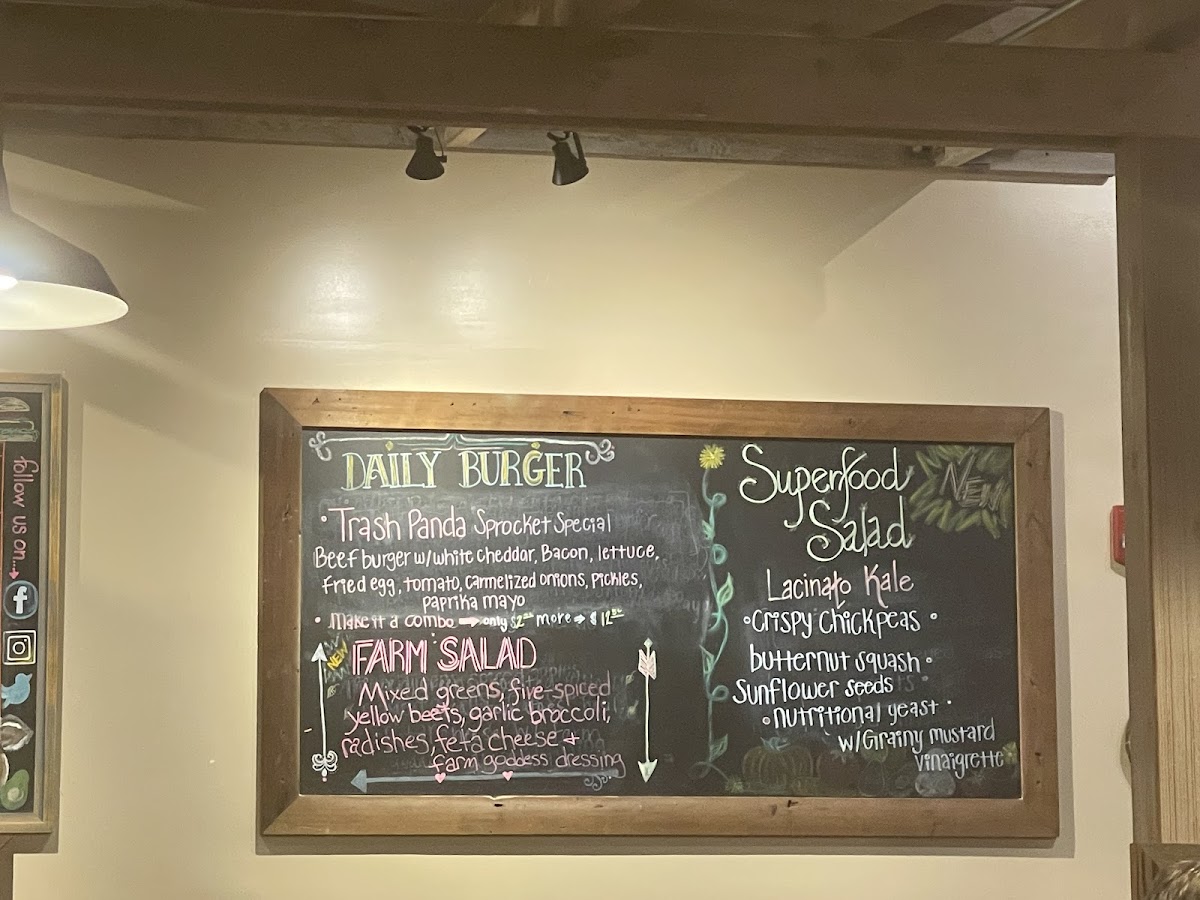 follow us on...
DAILY BURGER
• Trash Panda Sprocket Special
Beef burger w/white cheddar, Bacon, lettuce,
fried egg, tomato, carmelized onions, pickles,
paprika mayo
• Make it a combo → only $2 more → $12
NEW
FARM SALAD
Mixed greens, five-spiced
yellow beets, garlic broccoli,
radishes, feta cheese +
farm goddess dressing
Superfood
Salad
NEW
Lacinato Kale
• Crispy Chickpeas •
butternut squash •
Sunflower seeds
• nutritional yeast •
w/Grainy mustard
vinaigrette